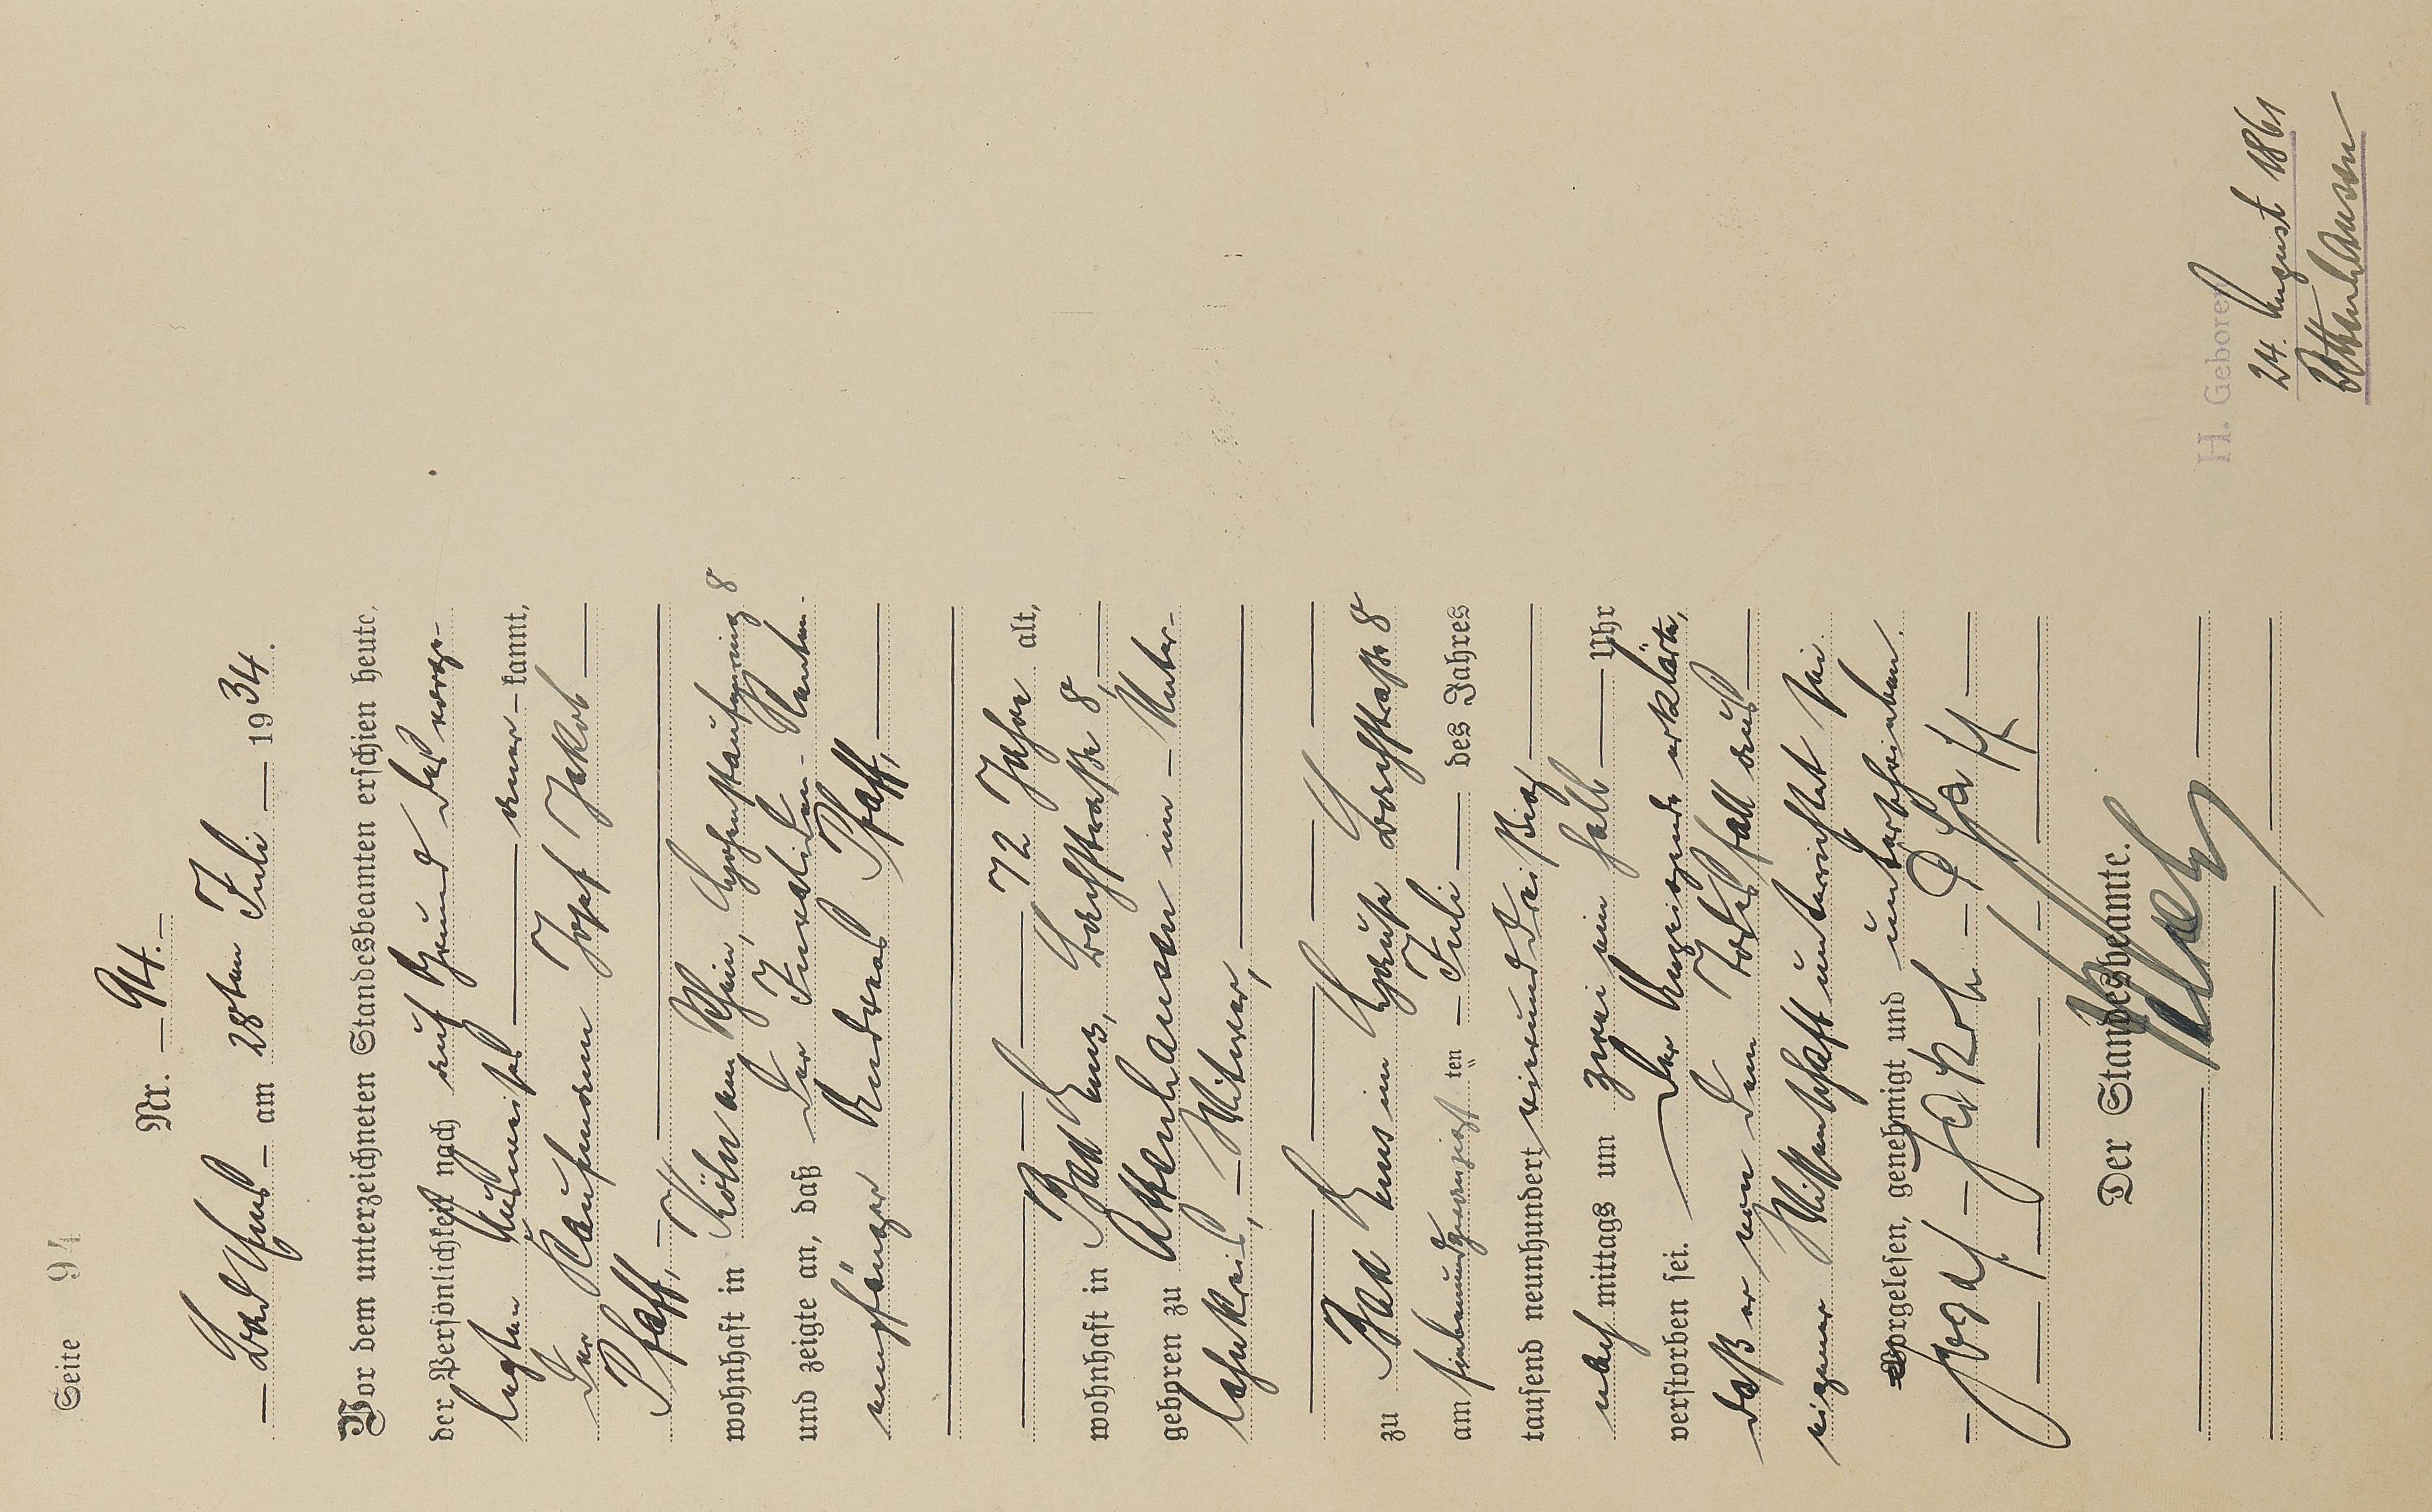 Seite 94
Nr. 94.
Bad Ems am 28ten Juli 1934.
Vor dem unterzeichneten Standesbeamten erschien heute,
der Persönlichkeit nach auf Grund des vorge-
legten Ausweises aner-kannt,
der Kaufmann Josef Jakob
Pfaff,
wohnhaft in Köln am Rhein, Hohenstaufenring 8
und zeigte an, daß der Invaliden-Renten-
empfänger Andreas Pfaff,
72 Jahre alt,
wohnhaft in Bad Ems, Bachstraße 8,
geboren zu Attenhausen im Unter-
lahnkreis, Witwer,
zu Bad Ems im Hause Bachstraße 8
am siebenundzwanzigsten Juli des Jahres
tausend neunhundert vierunddreißig
nachmittags um zwei ein halb Uhr
verstorben sei. Der Anzeigende erklärte,
daß er von dem Todesfall aus
eigener Wissenschaft unterrichtet sei.
Vorgelesen, genehmigt und unterschrieben.
Josef Jakob Pfaff
Der Standesbeamte.
H. Geboren
24. August 1861
Attenhausen